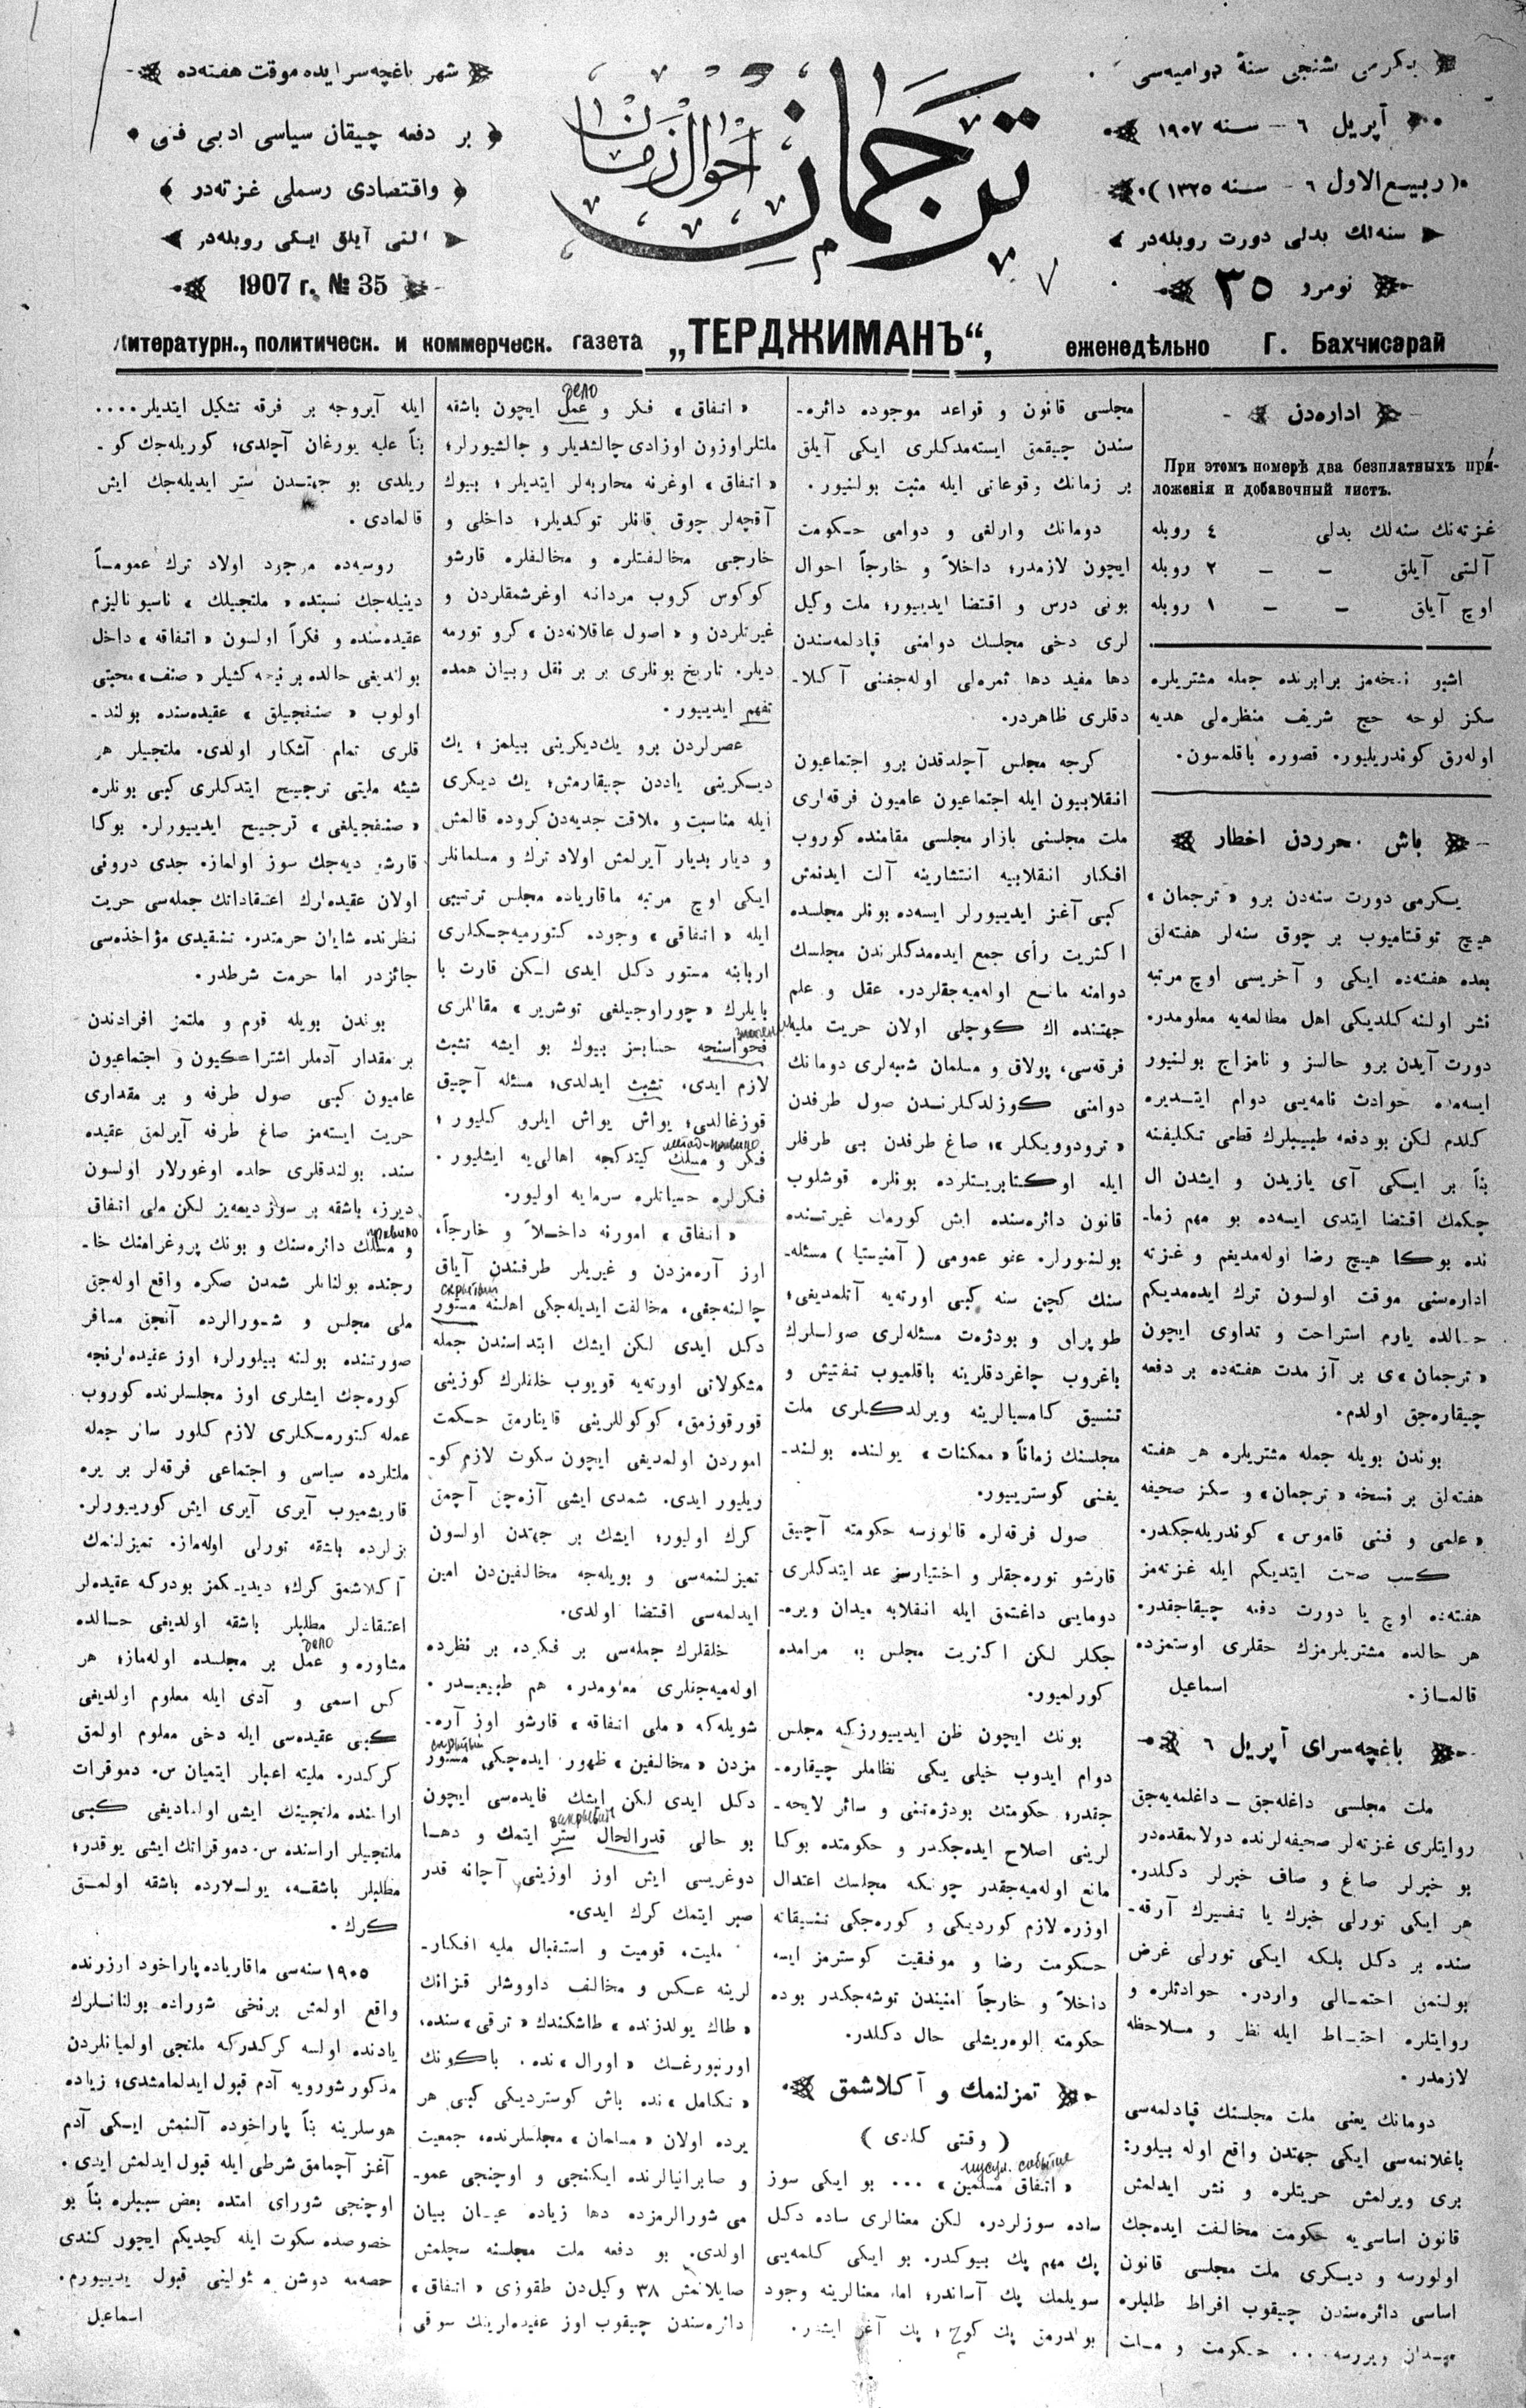 يكرمى بشنجى سنهٔ دواميه‌سى
آپريل ٦ - سنه ١٩٠٧
(ربيع الاول ٦ - سنه ١٣٢٥)
سنه‌لك بدلى دورت روبله‌در
نومرو ٣٥
ترجمان
احوال زمان
شهر باغچه‌سرايده موقت هفته‌ده
بر دفعه چيقان سياسى ادبى فنى
واقتصادى رسملى غزته‌در
التى آيلق ايكى روبله‌در
1907 г. № 35
Литературн., политическ. и коммерческ. газета „ТЕРДЖИМАНЪ“, еженедѣльно Г. Бахчисарай
اداره‌دن
При этомъ номерѣ два безплатныхъ при-
ложенія и добавочный листъ.
غزته‌نك سنه‌لك بدلى ٤ روبله
آلتى آيلق — — ٢ روبله
اوچ آيلق — — ١ روبله
اشبو نسخه‌مز برابرنده جمله مشتريلره
سكز لوحه حج شريف منظره‌لى هديه
اوله‌رق كوندريليور. قصوره باقلمسون.
باش محرردن اخطار
يكرمى دورت سنه‌دن برو «ترجمان»
هيچ توقتاميوب بر چوق سنه‌لر هفته‌لق
بعده هفته‌ده ايكى و آخريسى اوچ مرتبه
نشر اولنه كلديكى اهل مطالعه‌يه معلومدر.
دورت آيدن برو حالسز و نامزاج بولنيور
ايسه‌مده حوادث نامه‌يى دوام ايتديره
كلدم لكن بو دفعه طبيبلرك قطعى تكليفنه
بناً بر ايكى آى يازيدن و ايشدن ال
چكمك اقتضا ايتدى ايسه‌ده بو مهم زما-
نده بوكا هيچ رضا اوله‌مديغم و غزته
اداره‌سنى موقت اولسون ترك ايده‌مديكم
حالده يارم استراحت و تداوى ايچون
«ترجمان»ى بر آز مدت هفته‌ده بر دفعه
چيقاره‌جق اولدم.
بوندن بويله جمله مشتريلره هر هفته
هفته‌لق بر نسخه «ترجمان» و سكز صحيفه
«علمى و فنى قاموس» كوندريله‌جكدر.
كسب صحت ايتديكم ايله غزته‌مز
هفته‌ده اوچ يا دورت دفعه چيقاجقدر.
هر حالده مشتريلرمزك حقلرى اوستمزده
قالماز. اسماعيل
باغچه‌سراى آپريل ٦
ملت مجلسى داغله‌جق - داغلمه‌يه‌جق
روايتلرى غزته‌لر صحيفه‌لرنده دولامقده‌در
بو خبرلر صاغ و صاف خبرلر دكلدر.
هر ايكى تورلى خبرك يا تفسيرك آرقه-
سنده بر دكل بلكه ايكى تورلى غرض
بولنمق احتمالى واردر. حوادثلره و
روايتلره احتياط ايله نظر و ملاحظه
لازمدر.
دومانك يعنى ملت مجلسنك قپادلمه‌سى
باغلانمه‌سى ايكى جهتدن واقع اوله بيلور:
برى ويرلمش حريتلره و نشر ايدلمش
قانون اساسى‌يه حكومت مخالفت ايده‌جك
اولورسه و ديكرى ملت مجلسى قانون
اساسى دائره‌سندن چيقوب افراط طلبلره
ميدان ويررسه... حكومت و ملت
مجلسى قانون و قواعد موجوده دائره-
سندن چيقمق ايسته‌مدكلرى ايكى آيلق
بر زمانك وقوعاتى ايله مثبت بولنيور.
دومانك وارلغى و دوامى حكومت
ايچون لازمدر؛ داخلاً و خارجاً احوال
بونى درس و اقتضا ايدييور؛ ملت وكيل
لرى دخى مجلسك دوامنى قپادلمه‌سندن
دها مفيد دها ثمره‌لى اوله‌جغنى آكلا-
دقلرى ظاهردر.
كرچه مجلس آچلدقدن برو اجتماعيون
انقلابيون ايله اجتماعيون عاميون فرقه‌لرى
ملت مجلسنى بازار مجلسى مقامنده كوروب
افكار انقلابيه انتشارينه آلت ايدنمش
كبى آغز ايدييورلر ايسه‌ده بونلر مجلسده
اكثريت رأى جمع ايده‌مدكلرندن مجلسك
دوامنه مانع اوله‌ميه‌جقلردر. عقل و علم
جهتنده اك كوچلى اولان حريت مليه
فرقه‌سى، پولاق و مسلمان شعبه‌لرى دومانك
دوامنى كوزلدكلرندن صول طرفدن
«ترودوويكلر»، صاغ طرفدن بى طرفلر
ايله اوكتابريستلرده بونلره قوشلوب
قانون دائره‌سنده ايش كورمك غيرتنده
بولنيورلر. عفو عمومى (آمنيستيا) مسئله-
سنك كچن سنه كبى اورته‌يه آتلمديغى؛
طوپراق و بودژه‌ت مسئله‌لرى صوللرك
باغروب چاغردقلرينه باقلميوب تفتيش و
تنسيق كاميسيالرينه ويرلدكلرى ملت
مجلسنك زماناً «ممكنات» يولنده بولند-
يغنى كوستريييور.
صول فرقه‌لره قالورسه حكومته آچيق
قارشو توره‌جقلر و اختيارسز عد ايتدكلرى
دومايى داغتمق ايله انقلابه ميدان ويره-
جكلر لكن اكثريت مجلس بو مرامده
كورلميور.
بونك ايچون ظن ايدييورزكه مجلس
دوام ايدوب خيلى يكى نظاملر چيقاره-
جقدر؛ حكومتك بودژه‌تنى و سائر لايحه-
لرينى اصلاح ايده‌جكدر و حكومتده بوكا
مانع اوله‌ميه‌جقدر چونكه مجلسك اعتدال
اوزره لازم كورديكى و كوره‌جكى تنسيقاته
حكومت رضا و موفقيت كوسترمز ايسه
داخلاً و خارجاً امنيتدن توشه‌جكدر بوده
حكومته الويريشلى حال دكلدر.
تمزلنمك و آكلاشمق
(وقتى كلدى)
«اتفاق مسلمين»... بو ايكى سوز
ساده سوزلردر. لكن معنالرى ساده دكل
پك مهم پك بيوكدر. بو ايكى كلمه‌يى
سويلمك پك آساندر؛ اما معنالرينه وجود
بولدرمق پك كوچ؛ پك آغر ايشدر.
«اتفاق» فكر و عمل ايچون باشقه
дело
ملتلر اوزون اوزادى چالشديلر و چالشيورلر؛
«اتفاق» اوغرنه محاربه‌لر ايتديلر؛ بيوك
آقچه‌لر چوق قانلر توكديلر؛ داخلى و
خارجى مخالفتلره و مخالفلره قارشو
كوكوس كروب مردانه اوغرشمقلردن و
غيرتلردن و «اصول عاقلانه‌دن» كرو تورمه
ديلر. تاريخ بونلرى بر بر نقل وبيان همده
تفهم ايدييور.
عصرلردن برو يك‌ديكرينى بيلمز؛ يك
ديكرينى ياددن چيقارمش؛ يك ديكرى
ايله مناسبت و ملاقت جديه‌دن كروده قالمش
و ديار بديار آيرلمش اولاد ترك و مسلمانلر
ايكى اوچ مرتبه ماقارياده مجلس ترتيبى
ايله «اتفاقى» وجوده كتورميه‌جكلرى
اربابنه مستور دكل ايدى لكن قارت با
بايلرك «چوراوجيلغى توشرير» مقاللرى
فحواسنجه حسابسز بيوك بو ايشه تشبث
لازم ايدى. تشبث ايدلدى؛ مسئله آچيق
قوزغالدى؛ يواش يواش ايلرو كليور؛
فكر و مسلك كيتدكجه اهالى‌يه ايشليور.
فكرلره حسياتلره سرمايه اوليور.
«اتفاق» امورنه داخلاً و خارجاً،
اوز آره‌مزدن و غيريلر طرفندن آياق
چالنه‌جغى، مخالفت ايديله‌جكى اهلنه مستور
скрытый
دكل ايدى لكن ايشك ابتداسندن جمله
مشكولاتى اورته‌يه قويوب خلقلرك كوزينى
قورقوزمق، كوكوللرينى قاينارمق حكمت
اموردن اولمديغى ايچون سكوت لازم كو-
ريليور ايدى. شمدى ايشى آزه‌جق آچمق
كرك اوليور؛ ايشك بر جهتدن اولسون
تميزلنمه‌سى و بويله‌جه مخالفين‌دن امين
ايدلمه‌سى اقتضا اولدى.
خلقلرك جمله‌سى بر فكرده بر نظرده
اوله‌ميه‌جقلرى معلومدر، هم طبيعيدر.
شويله‌كه «ملى اتفاقه» قارشو اوز آره-
مزدن «مخالفين» ظهور ايده‌جكى مستور
скрытый
دكل ايدى لكن ايشك فايده‌سى ايچون
بو حالى قدرالحال ستر ايتمك و دها
دوغريسى ايش اوز اوزينى آچانه قدر
صبر ايتمك كرك ايدى.
مليت، قوميت و استقبال مليه افكار-
لرينه عكس و مخالف داووشلر قزانك
«طاك يولدزنده» طاشكندك «ترقى»سنده،
اورنبورغك «اورال»نده. باكونك
«تكامل»نده باش كوستريديكى كبى هر
يرده اولان «مسلمان» مجلسلرنده، جمعيت
و صابرانيالرنده ايكنجى و اوچنجى عمو-
مى شورالرمزده دها زياده عيان بيان
اولدى. بو دفعه ملت مجلسنه سچلمش
صايلانمش ٣٨ وكيل‌دن طقوزى «اتفاق»
دائره‌سندن چيقوب اوز عقيده‌لرينك سوقى
ايله آيروجه بر فرقه تشكيل ايتديلر....
بناً عليه يورغان آچلدى؛ كوريله‌جك كو-
ريلدى بو جهتدن ستر ايديله‌جك ايش
قالمادى.
روسيه‌ده موجود اولاد ترك عموماً
دينيله‌جك نسبتده «ملتجيلك» ناسيوناليزم
عقيده‌سنده و فكراً اولسون «اتفاقه» داخل
بولنديغى حالده بر نيچه كشيلر «صنف» محبتى
اولوب «صنفجيلق» عقيده‌سنده بولند-
قلرى تمام آشكار اولدى. ملتجيلر هر
شيئه مليتى ترجيح ايتدكلرى كبى بونلره
«صنفجيلغى» ترجيح ايدييورلر. بوكا
قارشو ديه‌جك سوز اولماز. جدى درونى
اولان عقيده‌لرك اعتقاداتك جمله‌سى حريت
نظرنده شايان حرمتدر. تنقيدى مؤاخذه‌سى
جائزدر اما حرمت شرطدر.
بوندن بويله قوم و ملتمز افرادندن
بر مقدار آدملر اشتراكيون و اجتماعيون
عاميون كبى صول طرفه و بر مقدارى
حريت ايسته‌مز صاغ طرفه آيرلمق عقيده
سند. بولندقلرى حالده اوغورلار اولسون
ديرز، باشقه بر سوز ديمه‌يز لكن ملى اتفاق
و مسلك دائره‌سنك و بونك پروغرامنك خا-
رجنده بولنانلر شمدن صكره واقع اوله‌جق
ملى مجلس و شورالرده آنجق مسافر
صورتنده بولنه بيلورلر؛ اوز عقيده‌لرنجه
كوره‌جك ايشلرى اوز مجلسلرنده كوروب
عمله كتورمكلرى لازم كلور سائر جمله
ملتلرده سياسى و اجتماعى فرقه‌لر بر يره
قاريشميوب آيرى آيرى ايش كورييورلر.
بزلرده باشقه تورلى اوله‌ماز. تميزلنمك
آكلاشمق كرك؛ ديديكمز بودركه عقيده‌لر
اعتقادلر مطلبلر باشقه اولديغى حالده
مشاوره و عمل بر مجلسده اوله‌ماز؛ هر
дело
كس اسمى و آدى ايله معلوم اولديغى
كبى عقيده‌سى ايله دخى معلوم اولمق
كركدر. مليته اعتبار ايتميان س. دموقرات
اراسنده ملتجينك ايشى اولماديغى كبى
ملتجيلر اراسنده س. دموقراتك ايشى يوقدر؛
مطلبلر باشقه، يوللارده باشقه اولمق
كرك.
١٩٠٥ سنه‌سى ماقارياده پاراخود اوزرنده
واقع اولمش برنجى شوراده بولنانلرك
يادنده اولسه كركدركه ملتجى اولميانلردن
مذكور شورويه آدم قبول ايدلمامشدى؛ زياده
هوسلرينه بناً پاراخوده آلنمش ايكى آدم
آغز آچمامق شرطى ايله قبول ايدلمش ايدى.
اوچنجى شوراى امتده بعض سببلره بناً بو
خصوصده سكوت ايله كچديكم ايچون كندى
حصه‌مه دوشن مسئوليتى قبول ايدييورم.
اسماعيل